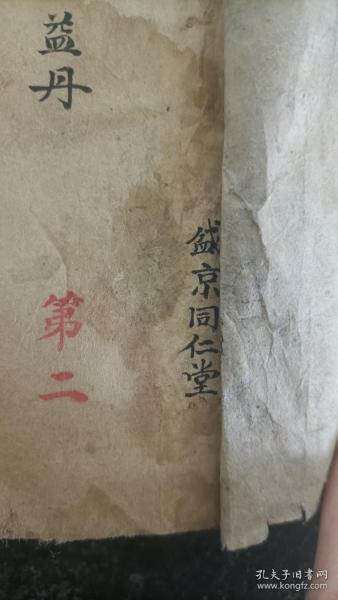 盛京同仁堂
益丹
第二
孔夫子旧书网